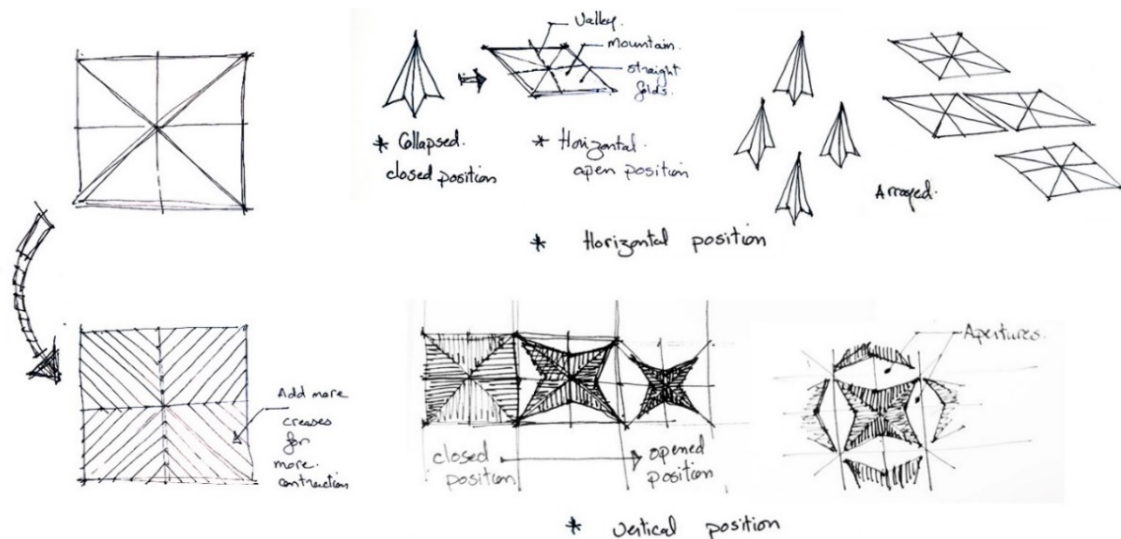 Valley.
mountain.
straight
folds.
* Collapsed.
closed position
* Horizontal
open position
Arrayed.
* Horizontal position
Add more
creases
for
more
contraction
closed
position
opened
position
Apertures.
* Vertical position